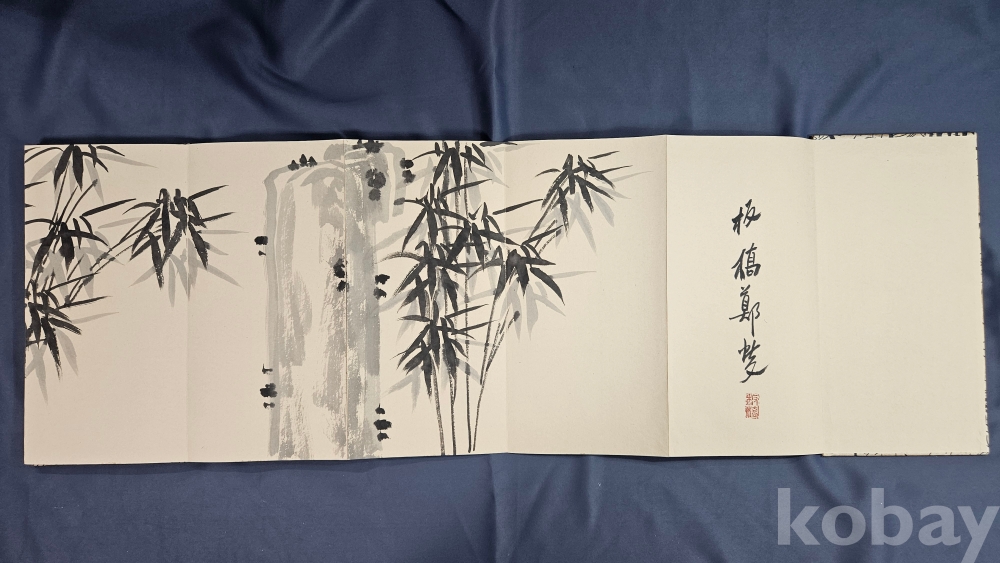 板橋鄭燮
kobay